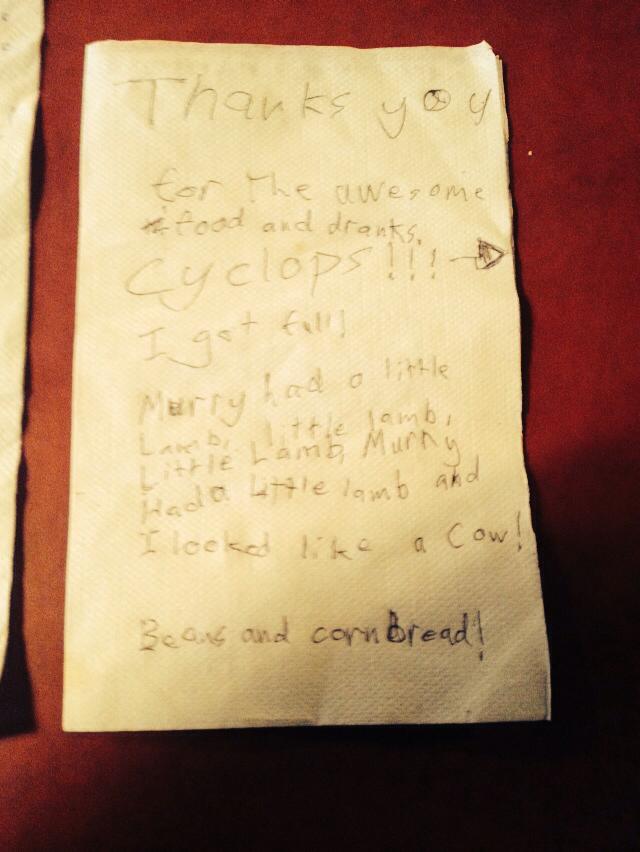 Thanks you
for the awesome
food and dranks.
Cyclops!!!
I got full!
Murry had a little
Lamb, little lamb,
Little Lamb, Murry
Had a little lamb and
I looked like a Cow!
Beans and cornbread!